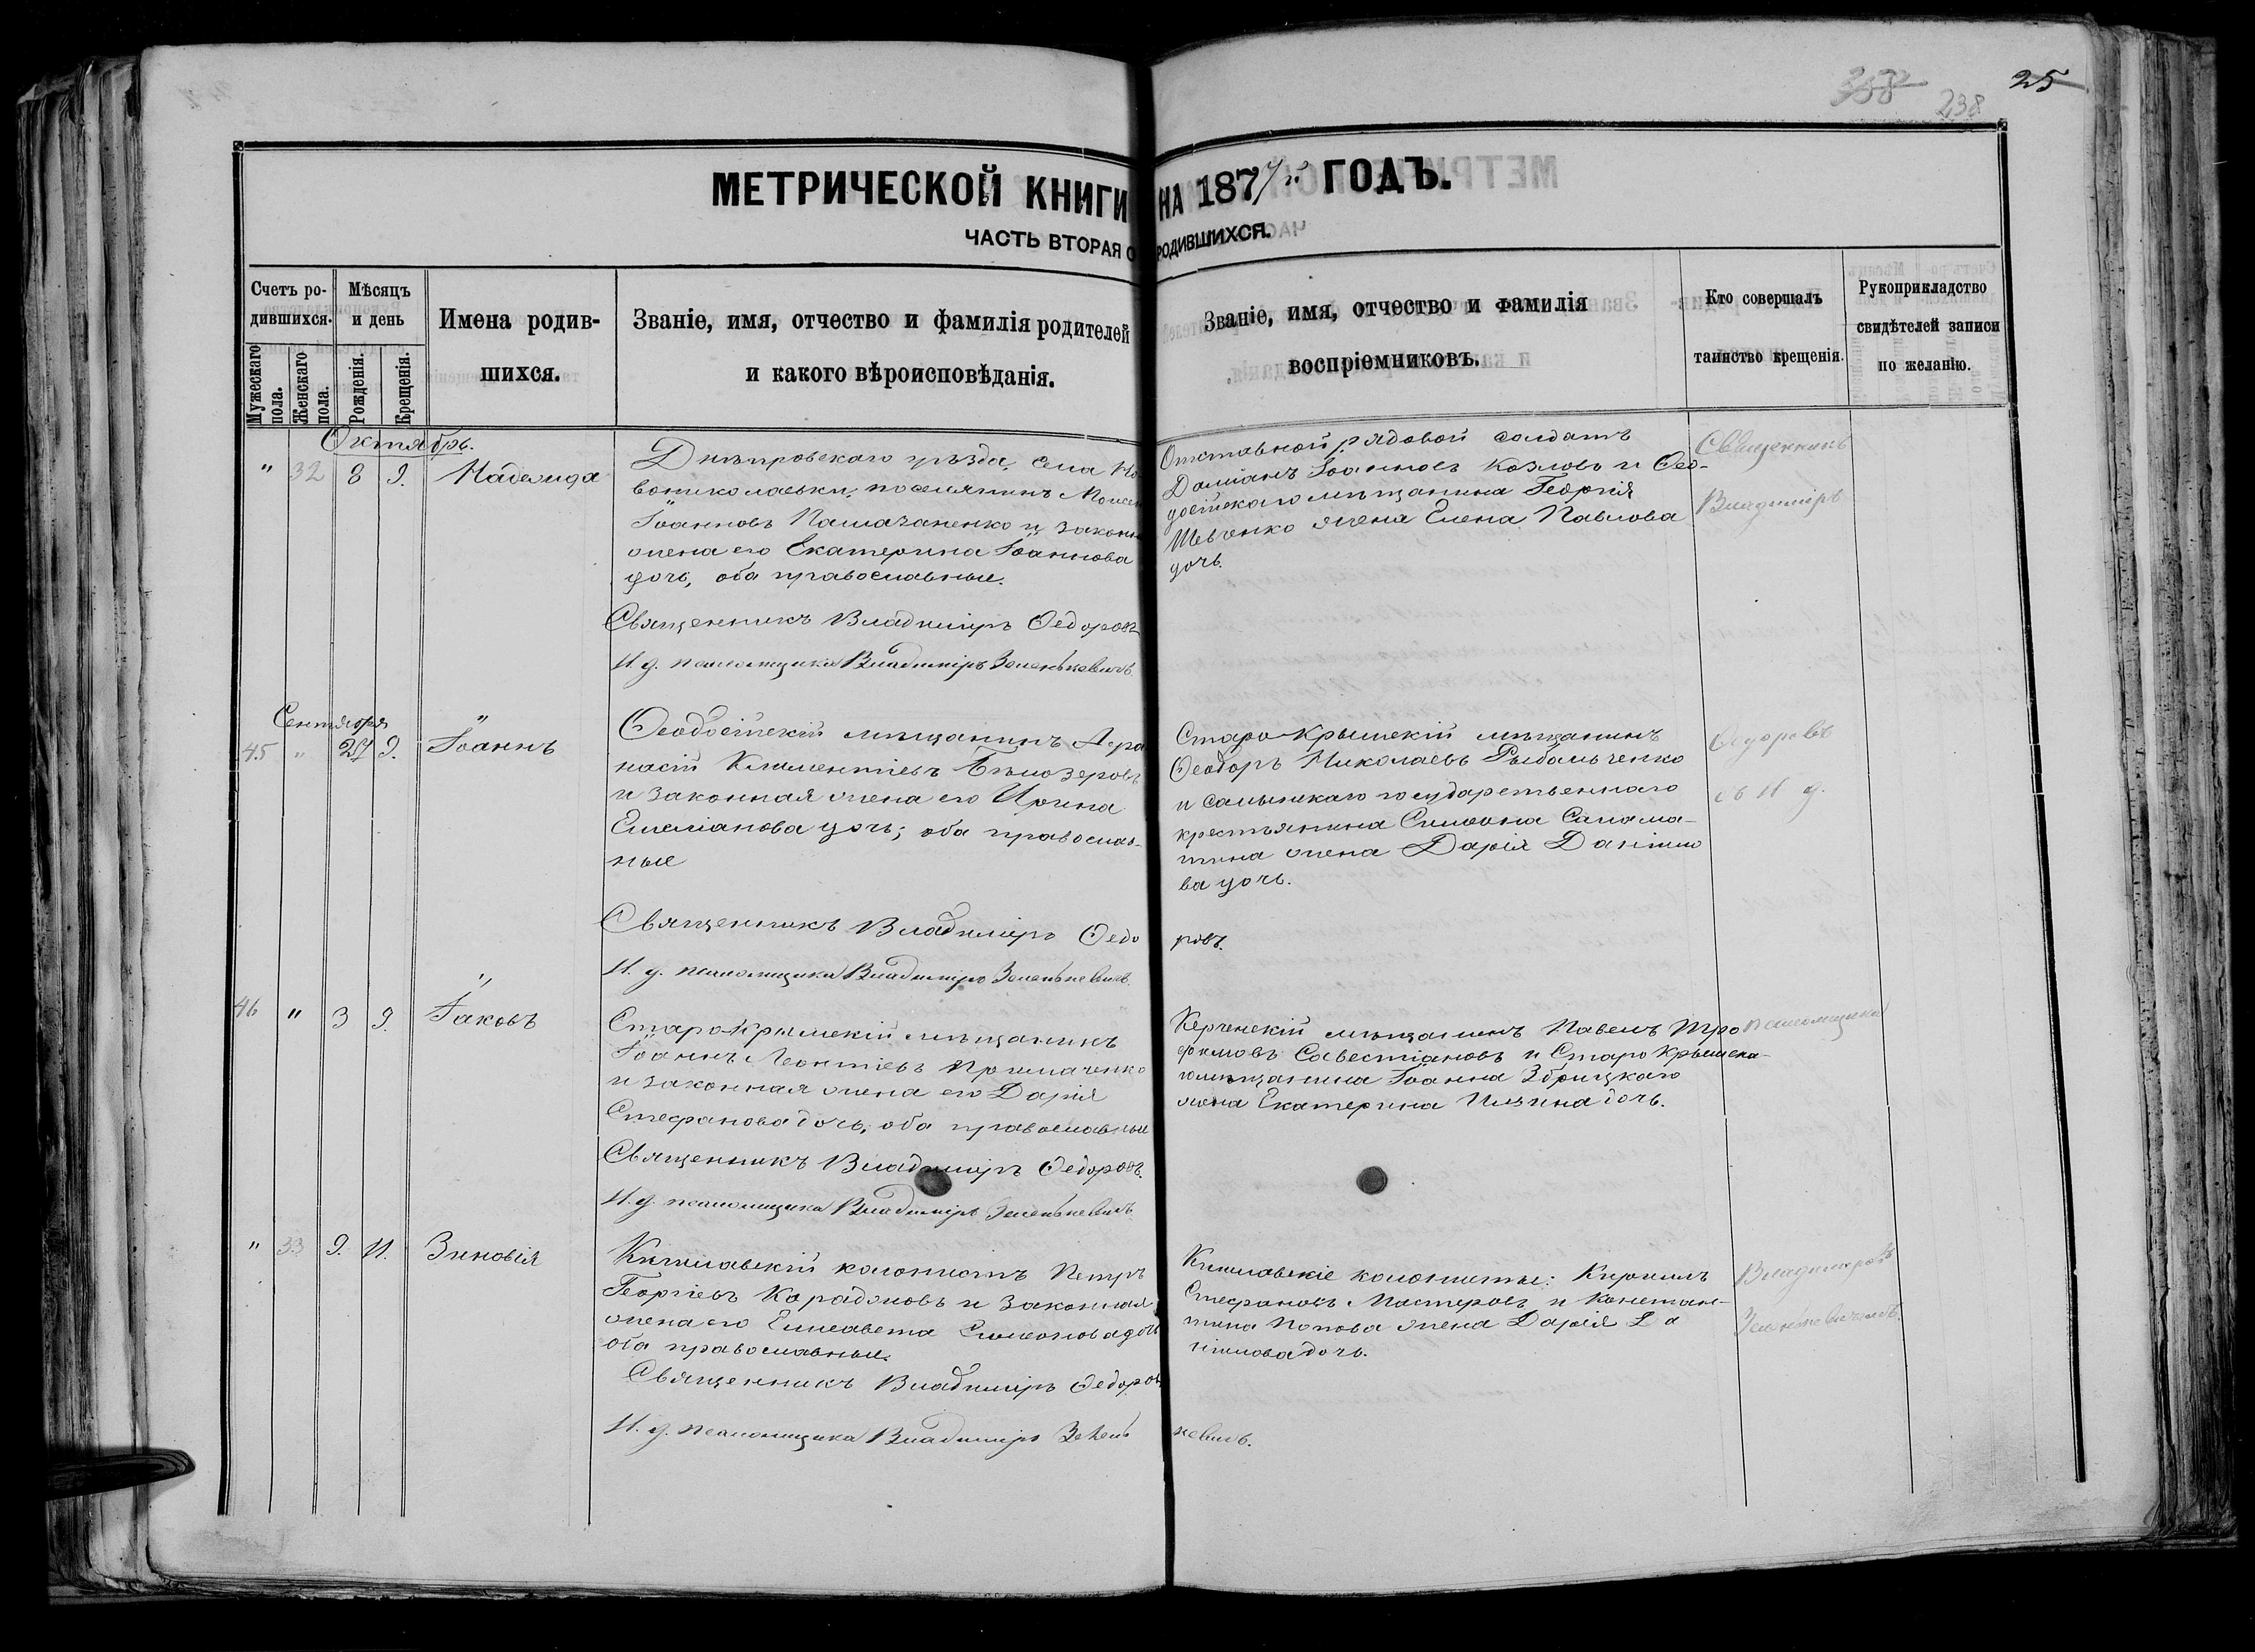 25
238
МЕТРИЧЕСКОЙ КНИГИ НА 1877й ГОДЪ.
ЧАСТЬ ВТОРАЯ О РОДИВШИХСЯ.
Счетъ родившихся.
Мужескаго пола.
Женскаго пола.
Мѣсяцъ и день
Рожденія.
Крещенія.
Имена родив-
шихся.
Званіе, имя, отчество и фамилія родителей
и какого вѣроисповѣданія.
Званіе, имя, отчество и фамилія
воспріемниковъ.
Кто совершалъ
таинство крещенія.
Рукоприкладство
свидѣтелей записи
по желанію.
Октябрь.
" 32 8 9. Надежда
Днѣпровскаго уѣзда, села Но-
вониколаевки, поселянинъ Моисей
Іоанновъ Памазаненко и законн
жена его Екатерина Іоаннова
дочь, оба православные.
Священникъ Владиміръ Ѳедоровъ
И. д. псаломщика Владиміръ Зеленькевичъ
Отставной рядовой солдатъ
Даміанъ Іоанновъ Козловъ и Ѳео-
досійскаго мѣщанина Георгія
Шевченко жена Елена Павлова
дочь.
Священникъ
Владиміръ
Сентября
45 " 27 9. Іоаннъ
Ѳеодосійскій мѣщанинъ Аѳа
насій Климентіевъ Бѣлозеровъ
и законная жена его Ирина
Емеліанова дочь; оба православ-
ные
Священникъ Владиміръ Ѳедо ровъ.
И. д. псаломщика Владиміръ Зеленькевичъ.
Старо-Крымскій мѣщанинъ
Ѳеодоръ Николаевъ Рыбальченко
и государственнаго
крестьянина Симеона Салама-
тина жена Дарія Даніило
ва дочь.
Ѳедоровъ
съ И д.
46 " 3 9. Іаковъ
Старо-Крымскій мѣщанинъ
Іоаннъ Леонтіевъ Примаченко
и законная жена его Дарія
Стефанова дочь, оба православные
Священникъ Владиміръ Ѳедоровъ.
И. д. псаломщика Владиміръ Зеленькевичъ
Керченскій мѣщанинъ Павелъ Тро
фимовъ Савестіановъ и Старо Крымска-
го мѣщанина Іоанна Збрицкаго
жена Екатерина Ильина дочь.
псаломщика
" 33 9. 11. Зиновія
Кишлавскій колонистъ Петръ
Георгіевъ Карадоновъ и законная
жена его Елисавета Симеонова дочь
оба православные.
Священникъ Владиміръ Ѳедоровъ
И. д. псаломщика Владиміръ Зелень кевичъ.
Кишлавскіе колонисты: Кириллъ
Стефановъ Мастеровъ и Констан-
тина Попова жена Дарія Да
ніилова дочь.
Владиміромъ
Зеленькевичемъ